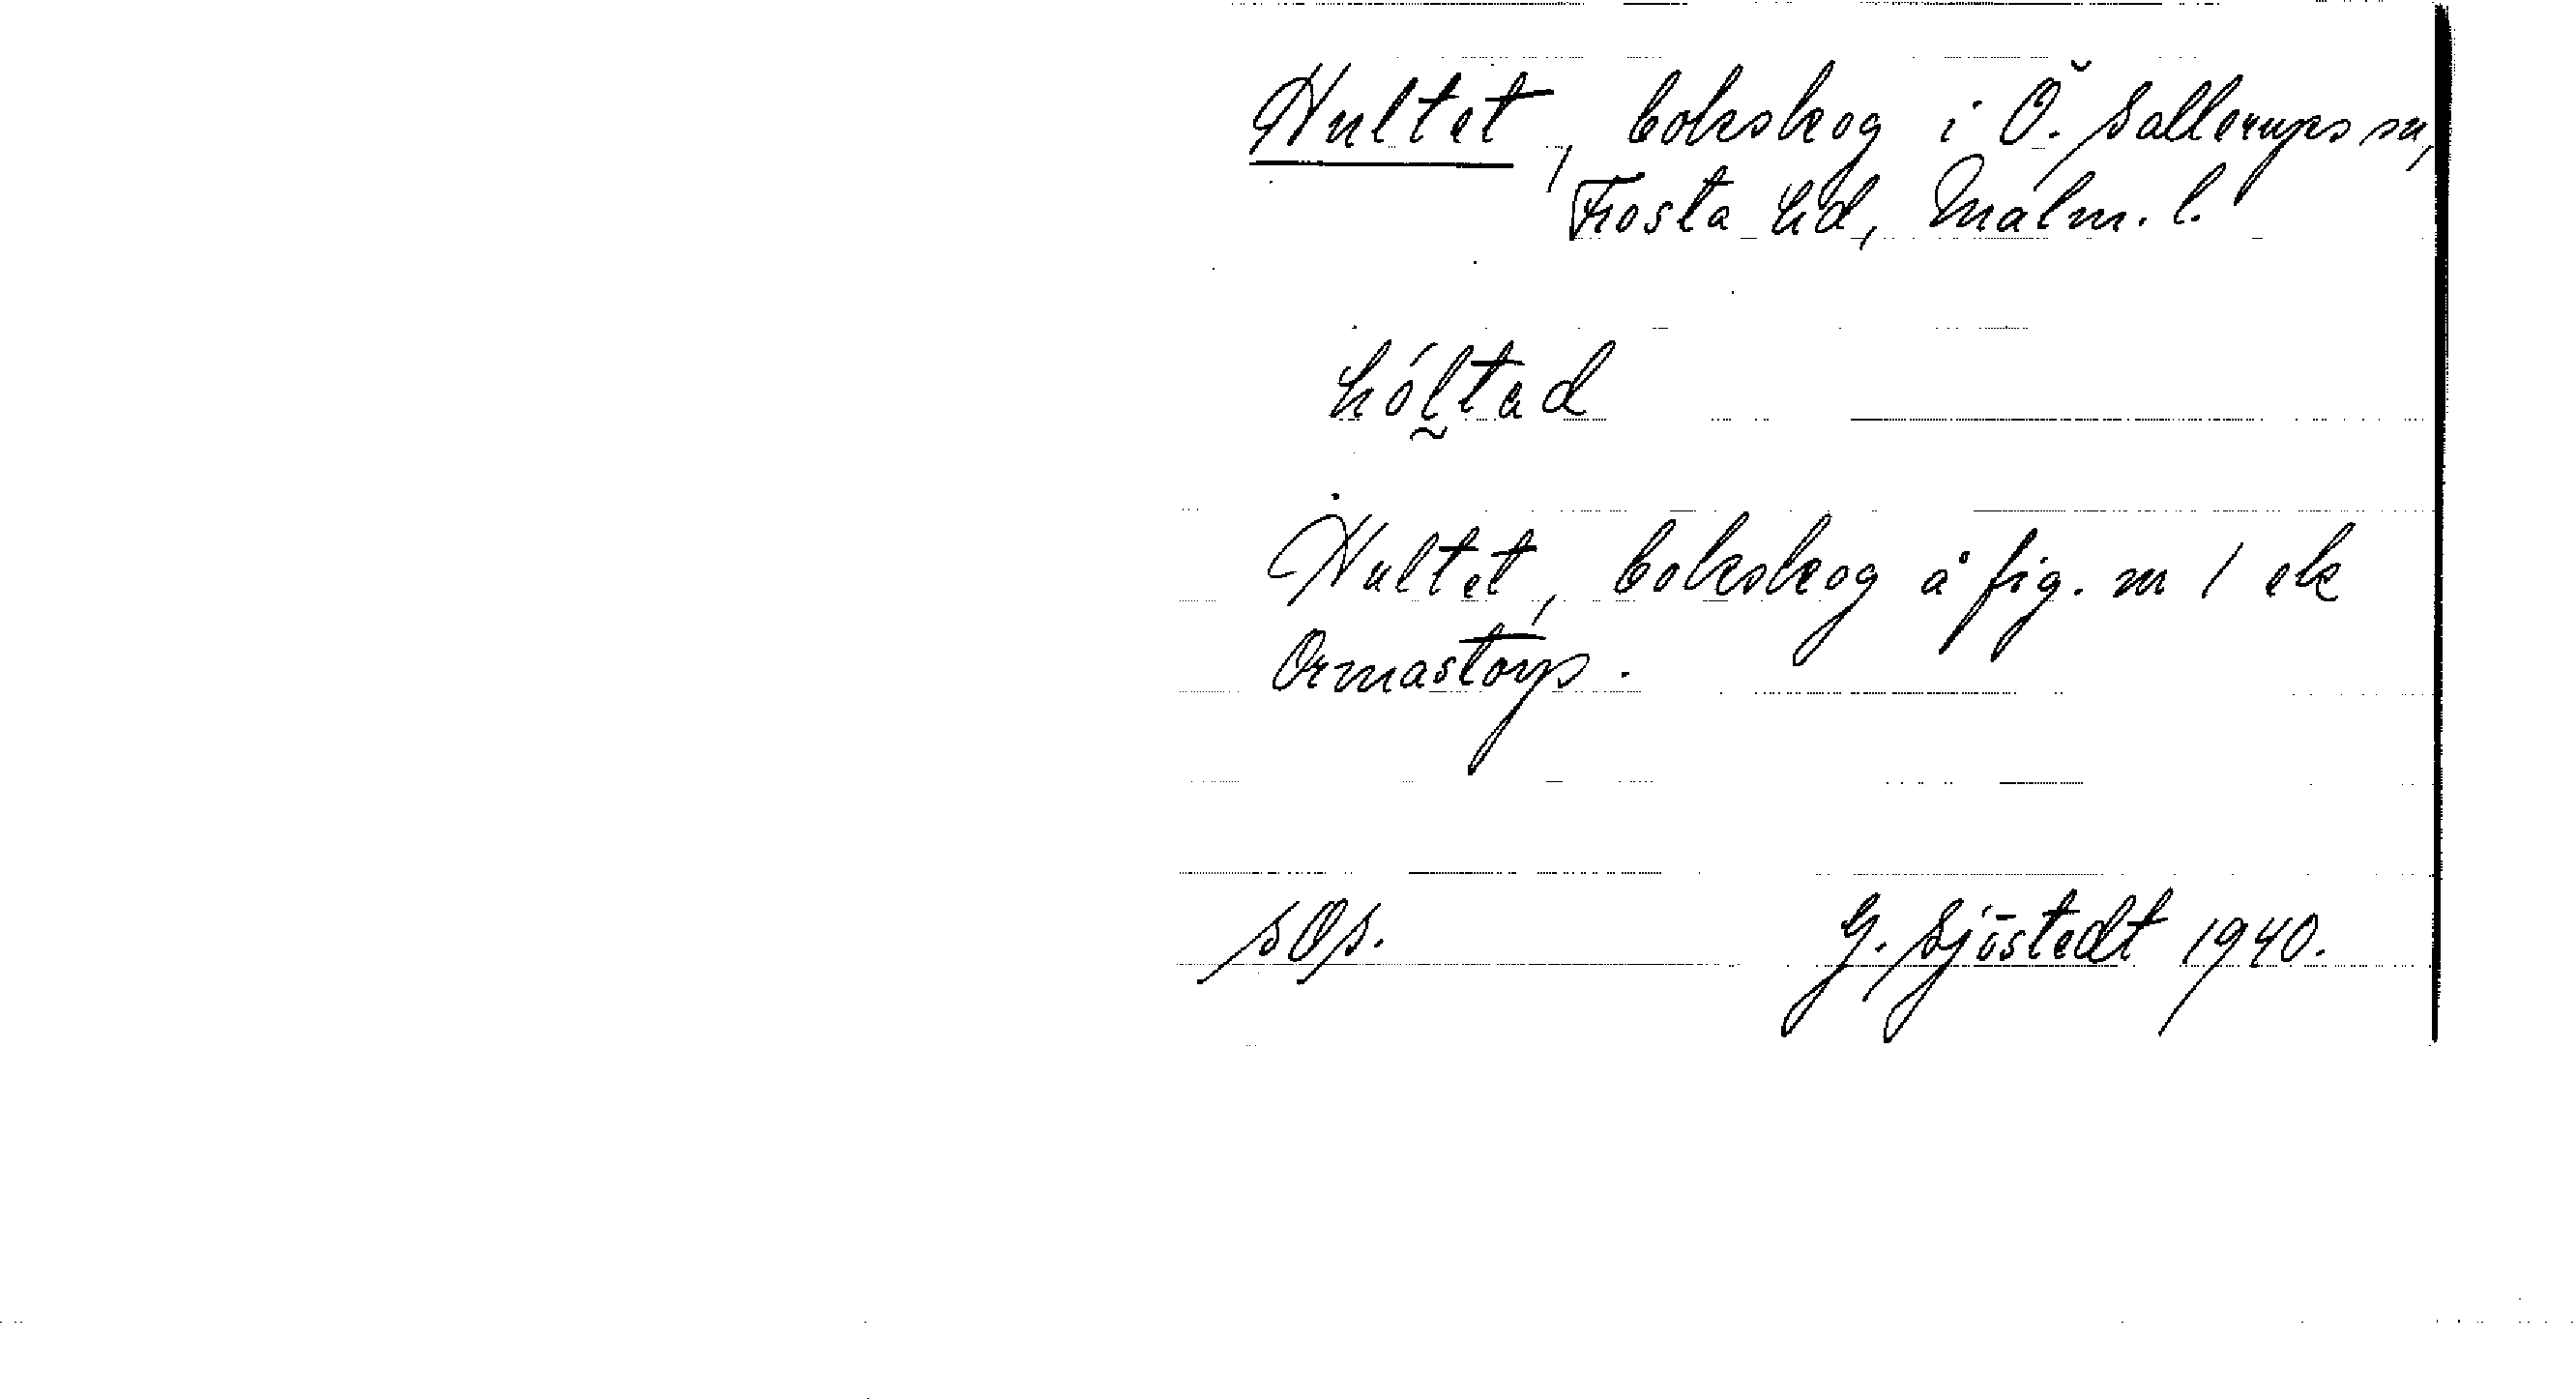 Hultet, bokskog i Ö. Sallerups sn,
Frosta hd, Malm. l.
hól̰tad
Hultet, bokskog å fig. nr 1 ek
Ormastorp.
sOs.
G. Sjöstedt 1940.